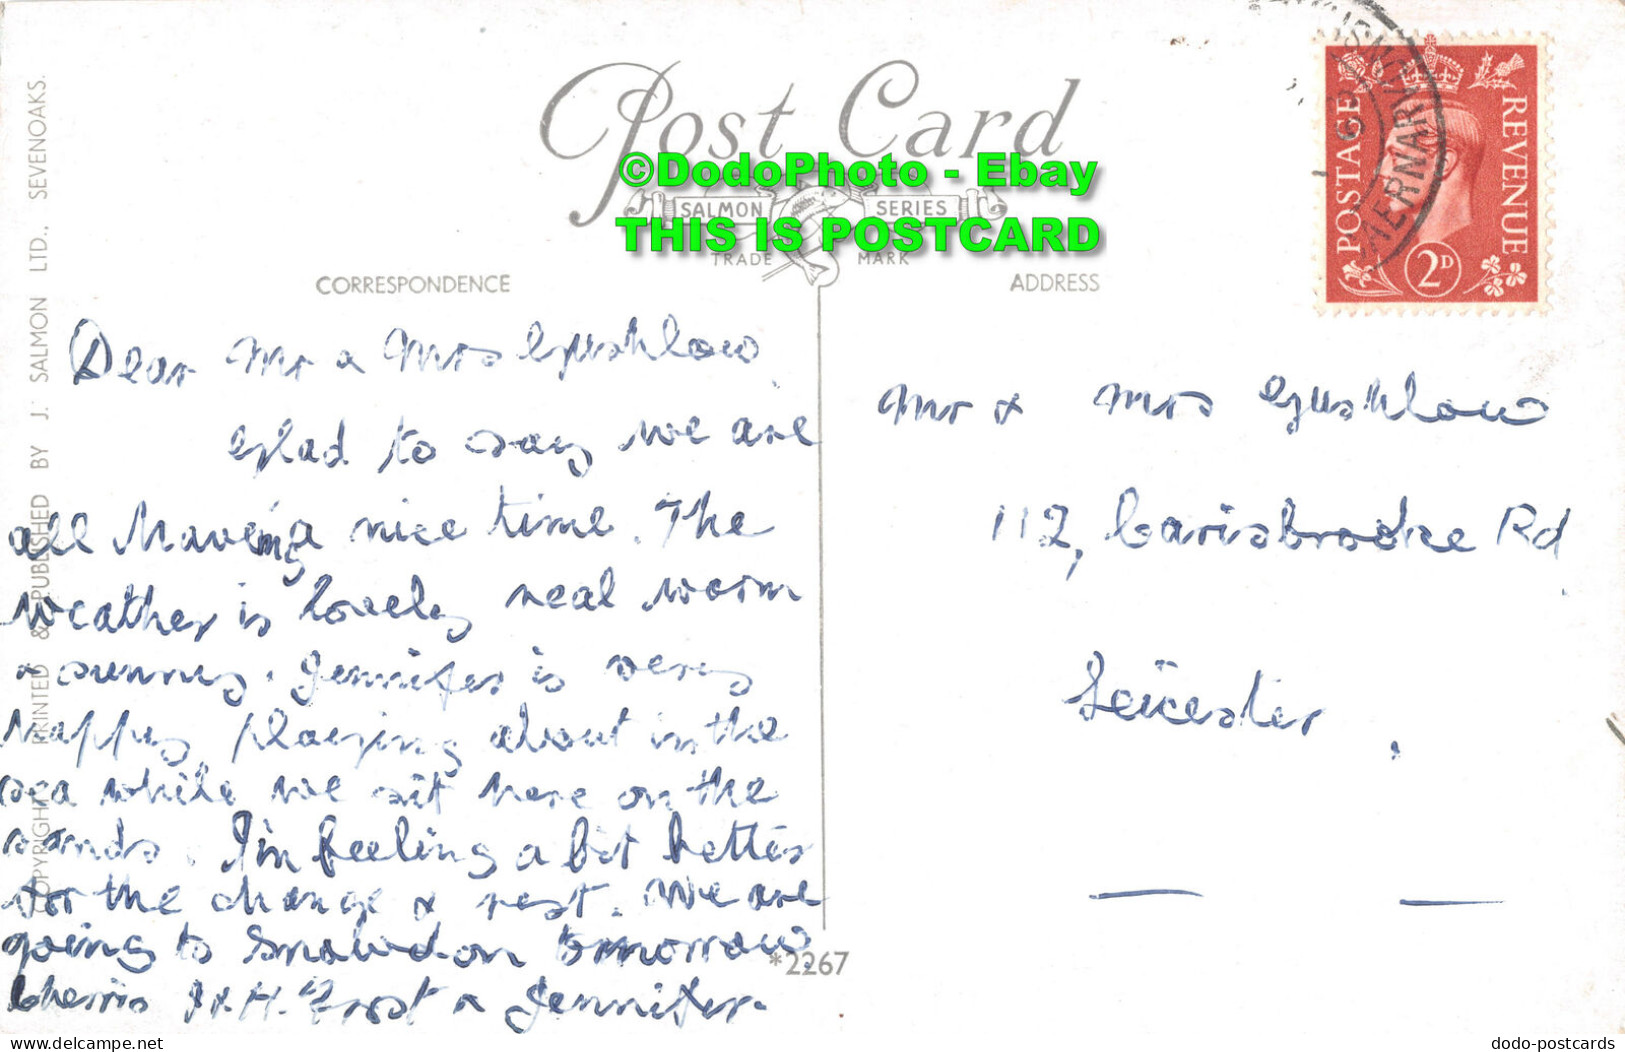 Post Card
©DodoPhoto - Ebay
SALMON SERIES
THIS IS POSTCARD
TRADE MARK
CORRESPONDENCE
ADDRESS
POSTAGE
REVENUE
2D
COPYRIGHT PRINTED & PUBLISHED BY J. SALMON LTD., SEVENOAKS.
Dear Mr & Mrs Gushlow
Glad to say we are
all having a nice time. The
weather is lovely real warm
& sunny. Jennifer is very
happy playing about in the
sea while we sit here on the
sands. I'm feeling a bit better
for the change & rest. We are
going to Snowdon tomorrow.
Cherrio J & H. Frost & Jennifer.
Mr & Mrs Gushlow
112, Carisbrooke Rd
Leicester,
*2267
delcampe.net
dodo-postcards